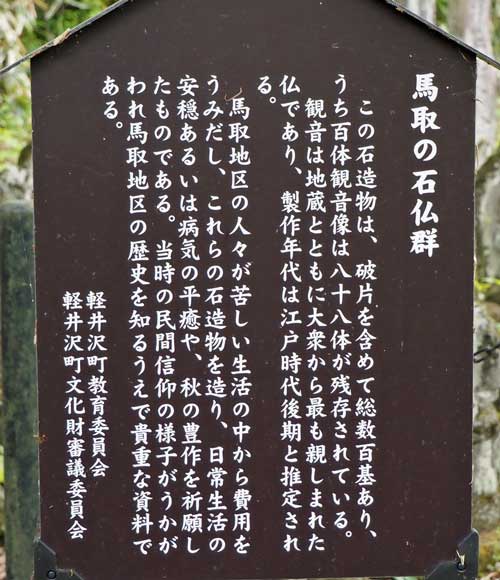 馬取の石仏群
この石造物は、破片を含めて総数百基あり、
うち百体観音像は八十八体が残存されている。
観音は地蔵とともに大衆から最も親しまれた
仏であり、製作年代は江戸時代後期と推定され
る。
馬取地区の人々が苦しい生活の中から費用を
うみだし、これらの石造物を造り、日常生活の
安穏あるいは病気の平癒や、秋の豊作を祈願し
たものである。当時の民間信仰の様子がうかが
われ馬取地区の歴史を知るうえで貴重な資料で
ある。
軽井沢町教育委員会
軽井沢町文化財審議委員会